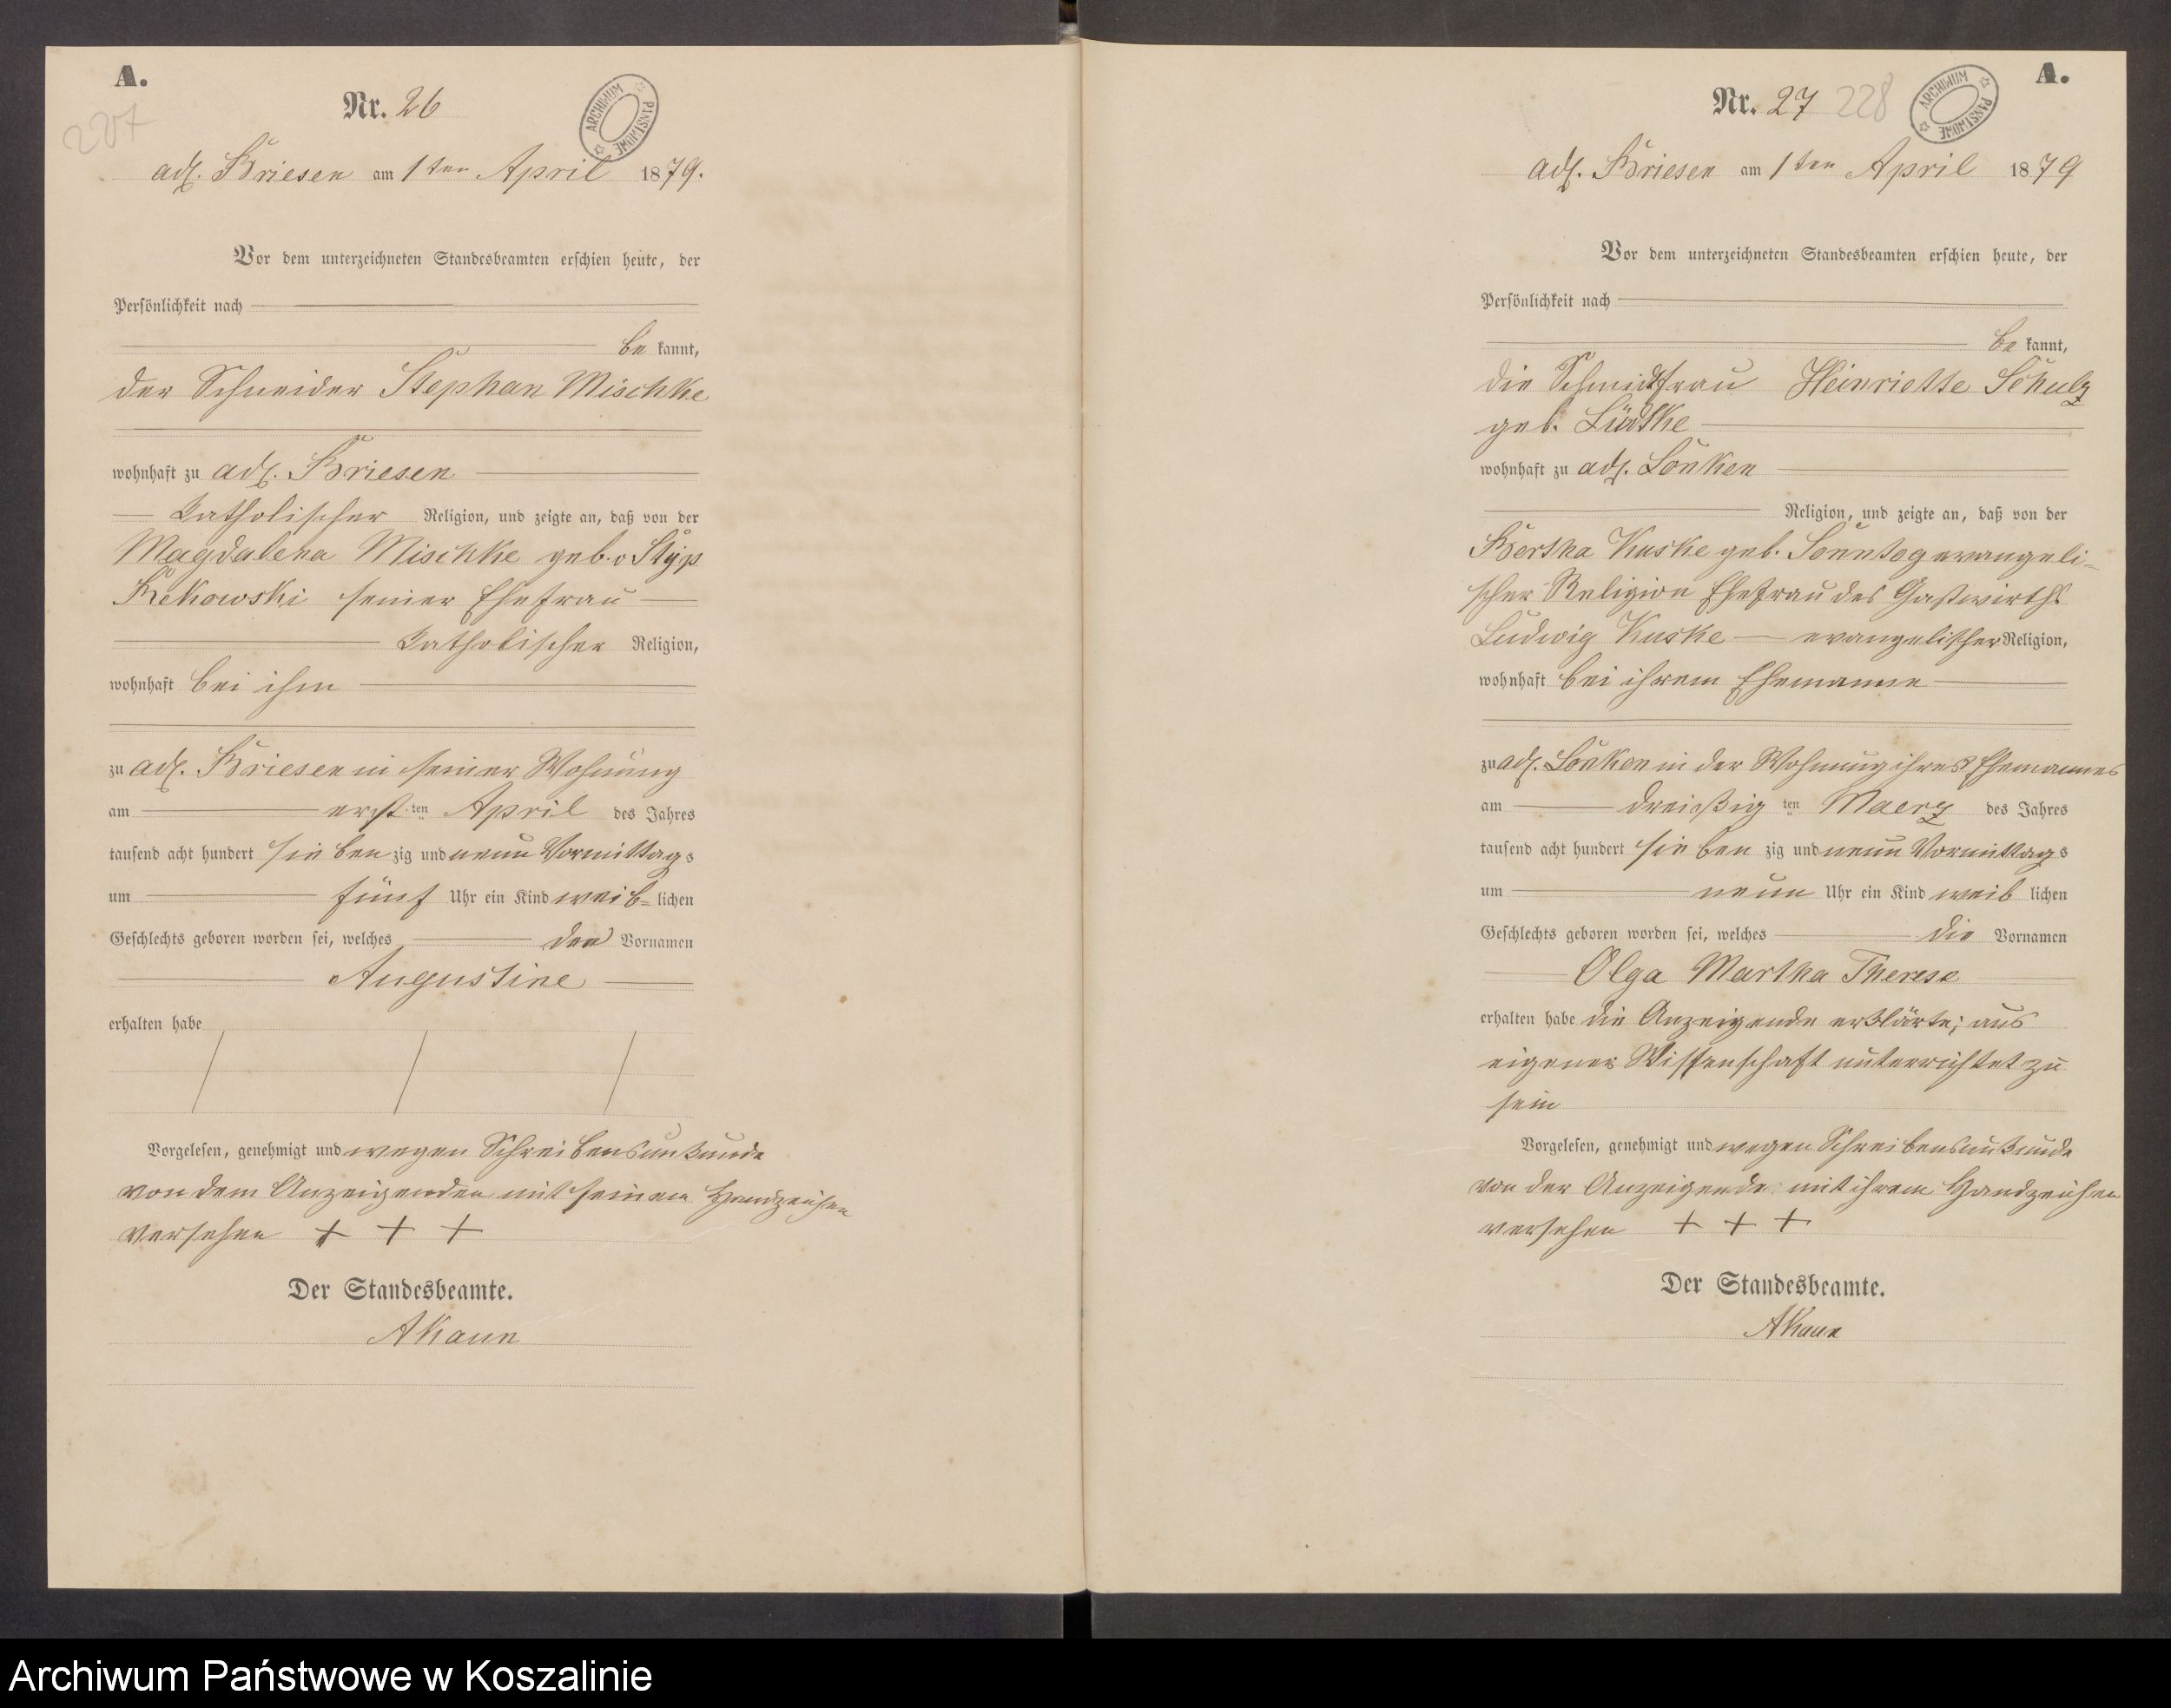 A.
Nr. 26
ARCHIWUM PAŃSTWOWE
adl. Briesen am 1ten April 1879.
Vor dem unterzeichneten Standesbeamten erschien heute, der
Persönlichkeit nach
be kannt,
der Schneider Stephan Mischke
wohnhaft zu adl. Briesen
katholischer Religion, und zeigte an, daß von der
Magdalena Mischke geb. v Styp
Rekowski seiner Ehefrau
katholischer Religion,
wohnhaft bei ihm
zu adl. Briesen in seiner Wohnung
am erst ten April des Jahres
tausend acht hundert sieben zig und neun Vormittags
um fünf Uhr ein Kind weib= lichen
Geschlechts geboren worden sei, welches den Vornamen
Augustine
erhalten habe
Vorgelesen, genehmigt und wegen Schreibensunkunde
von dem Anzeigenden mit seinem Handzeichen
versehen + + +
Der Standesbeamte.
AKaun
A.
Nr. 27 228
ARCHIWUM PAŃSTWOWE
adl. Briesen am 1ten April 1879
Vor dem unterzeichneten Standesbeamten erschien heute, der
Persönlichkeit nach
be kannt,
die Schmidtfrau Heinriette Schulz
geb. Lüdtke
wohnhaft zu adl. Lonken
Religion, und zeigte an, daß von der
Bertha Kuske geb. Sonntag evangeli-
scher Religion Ehefrau des Gastwirths
Ludwig Kuske evangelischer Religion,
wohnhaft bei ihrem Ehemanne
zu adl. Lonken in der Wohnung ihres Ehemannes
am dreißig ten Maerz des Jahres
tausend acht hundert sieben zig und neun Vormittags
um neun Uhr ein Kind weib lichen
Geschlechts geboren worden sei, welches die Vornamen
Olga Martha Therese
erhalten habe die Anzeigende erklärte; aus
eigener Wissenschaft unterrichtet zu
sein
Vorgelesen, genehmigt und wegen Schreibensunkunde
von der Anzeigende mit ihrem Handzeichen
versehen + + +
Der Standesbeamte.
AKaun
Archiwum Państwowe w Koszalinie